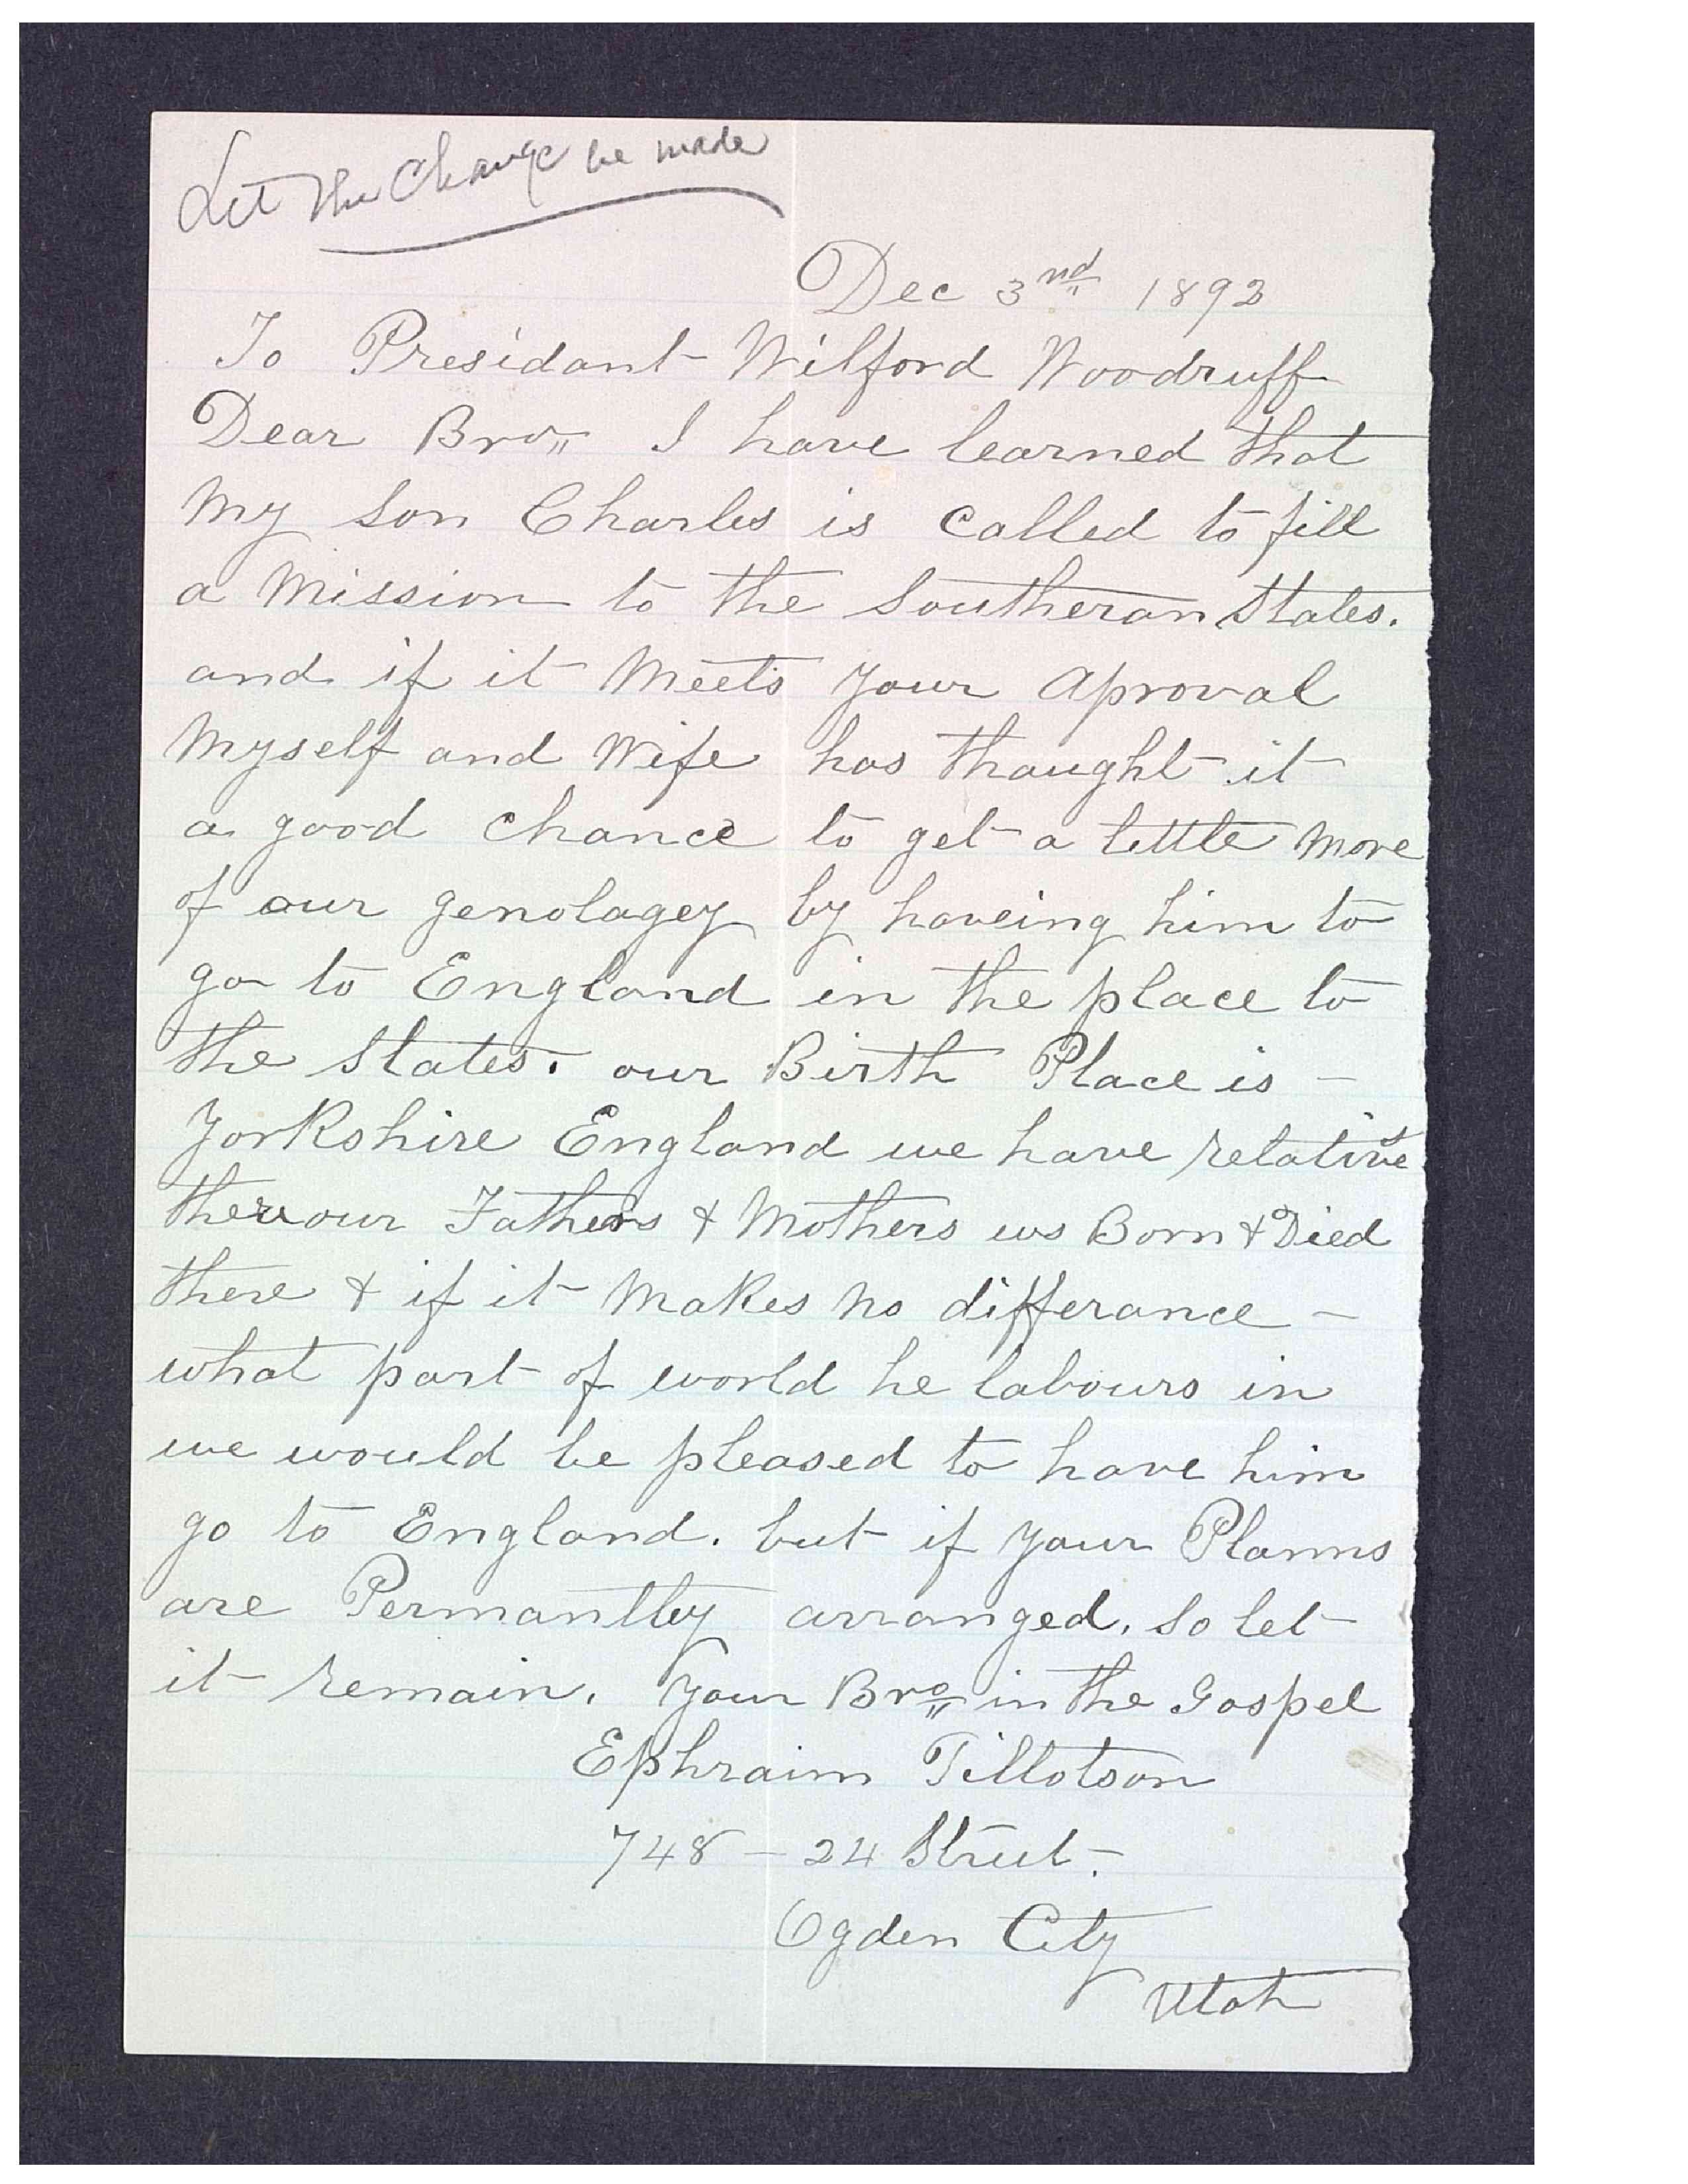 Let the Change be made
Dec 3nd 1893
To Presidant Wilford Woodruff
Dear Bro" I have learned that
My Son Charles is Called to fill
a Mission to the Southeran States.
and if it Meets your Aproval
Myself and Wife has thaught it
a good Chance to get a little More
of our genolagey by haveing him to
go to England in the place to
the States. our Birth Place is —
Yorkshire England we have relative
there our Fathers & Mothers ws Born & Died
there & if it Makes no differance —
what part of world he labours in
we would be pleased to have him
go to England. but if your Planns
are Permantley arranged, so let
it remain. your Bro" in the Gospel
Ephraim Tillotson
748 — 24 Street.
Ogden City
Utah